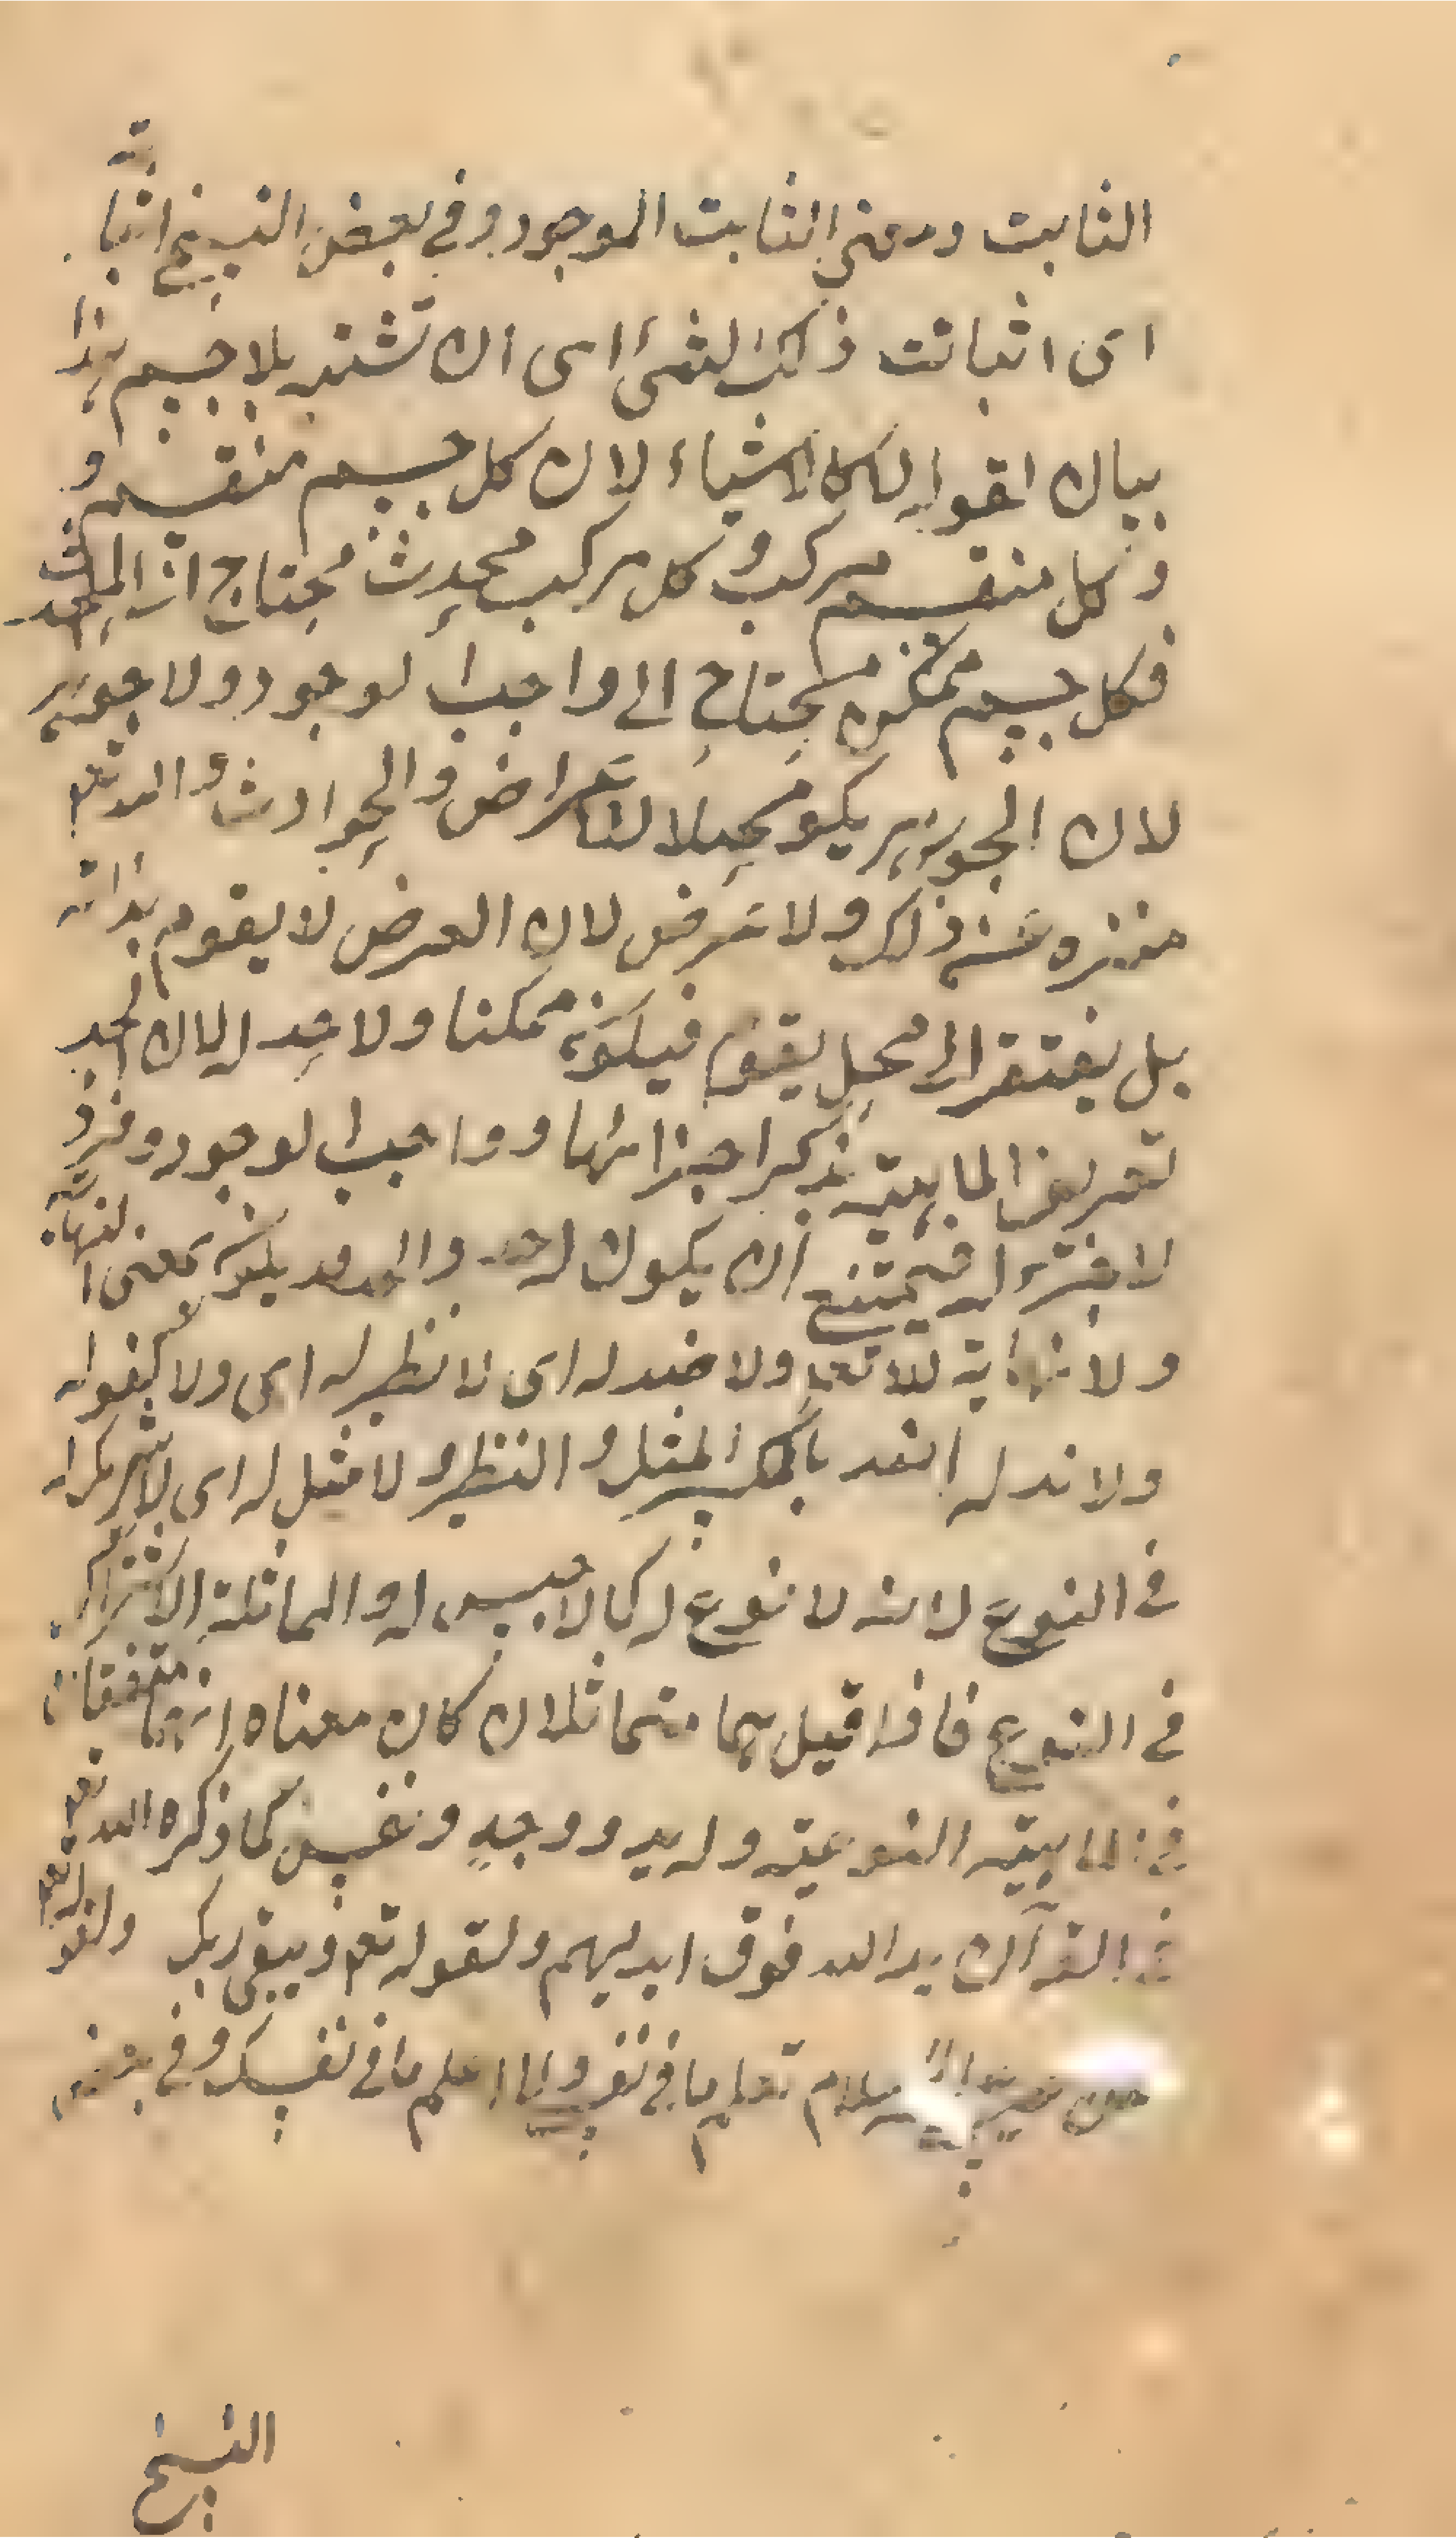 الثابت ومعنى الثابت الموجود وفي بعض النسخ اثباته
اى اثباتت ذلك الشئ اى ان تثبته بلا جسم هذا
بيان لقوله لا كالاشياء لان كل جسم منقسم و
وكل منقسم مركب وكل مركب محدث محتاج الى المحدث
فكل جسم ممكن محتاج الى واجب الوجود ولا جوهر
لان الجوهر يكون محلا للاعراض والحوادث والله تعم
منزه عن ذلك ولا عرض لان العرض لا يقوم بذاته
بل يفتقر الى محل يقوم فيكون ممكنا ولا حد له لان الحد
تعريف الماهية بذكر اجزائها وواجب الوجود فرد
لا جزء له فيمتنع ان يكون له حد والحد قد يكون بمعنى النهاية
ولا نهاية لله تعم ولا ضد له اى لا نظير له اى ولا كفو له
ولا ند له الند بالكسر المثل والنظير ولا مثل له اى لا شريك له
في النوع لانه لا نوع له كما لا جنس له والمماثلة الاشتراك
في النوع فاذا قيل هما متماثلان كان معناه انهما متفقان
في الماهية النوعية وله يد ووجه ونفس كما ذكره الله تعم
في القرآن يد الله فوق ايديهم ولقوله تعم ويبقى وجه ربك ولقوله تعم
عن عيسى عليه السلام تعلم ما في نفسي ولا اعلم ما في نفسك وفي بعض
النسخ